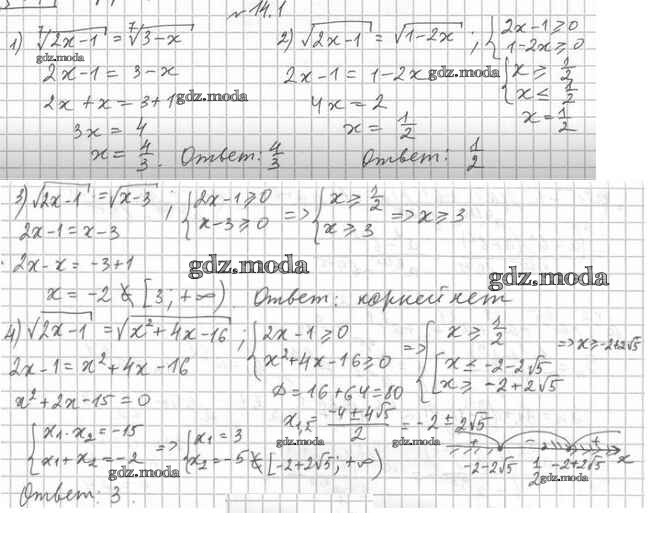 № 14.1
1) ⁷√(2x-1) = ⁷√(3-x)
gdz.moda
2x-1 = 3-x
2x+x = 3+1
gdz.moda
3x = 4
x = 4/3. Ответ: 4/3
2) √(2x-1) = √(1-2x) ; { 2x-1 ≥ 0
1-2x ≥ 0
2x-1 = 1-2x
gdz.moda
{ x ≥ 1/2
x ≤ 1/2
4x = 2
x = 1/2
x = 1/2
Ответ: 1/2
3) √(2x-1) = √(x-3) ; { 2x-1 ≥ 0
x-3 ≥ 0 => { x ≥ 1/2
x ≥ 3 => x ≥ 3
2x-1 = x-3
2x-x = -3+1
gdz.moda
gdz.moda
x = -2 ∉ [3; +∞) Ответ: корней нет
4) √(2x-1) = √(x²+4x-16) ; { 2x-1 ≥ 0
x²+4x-16 ≥ 0 => { x ≥ 1/2
[ x ≤ -2-2√5
x ≥ -2+2√5
=> x ≥ -2+2√5
2x-1 = x²+4x-16
x²+2x-15 = 0
D = 16+64 = 80
x₁,₂ = (-4±4√5)/2 = -2±2√5
gdz.moda
gdz.moda
{ x₁·x₂ = -15
x₁+x₂ = -2 => { x₁ = 3
x₂ = -5 ∉ [-2+2√5; +∞)
gdz.moda
+ - +
-2-2√5 1/2 -2+2√5 x
gdz.moda
Ответ: 3.